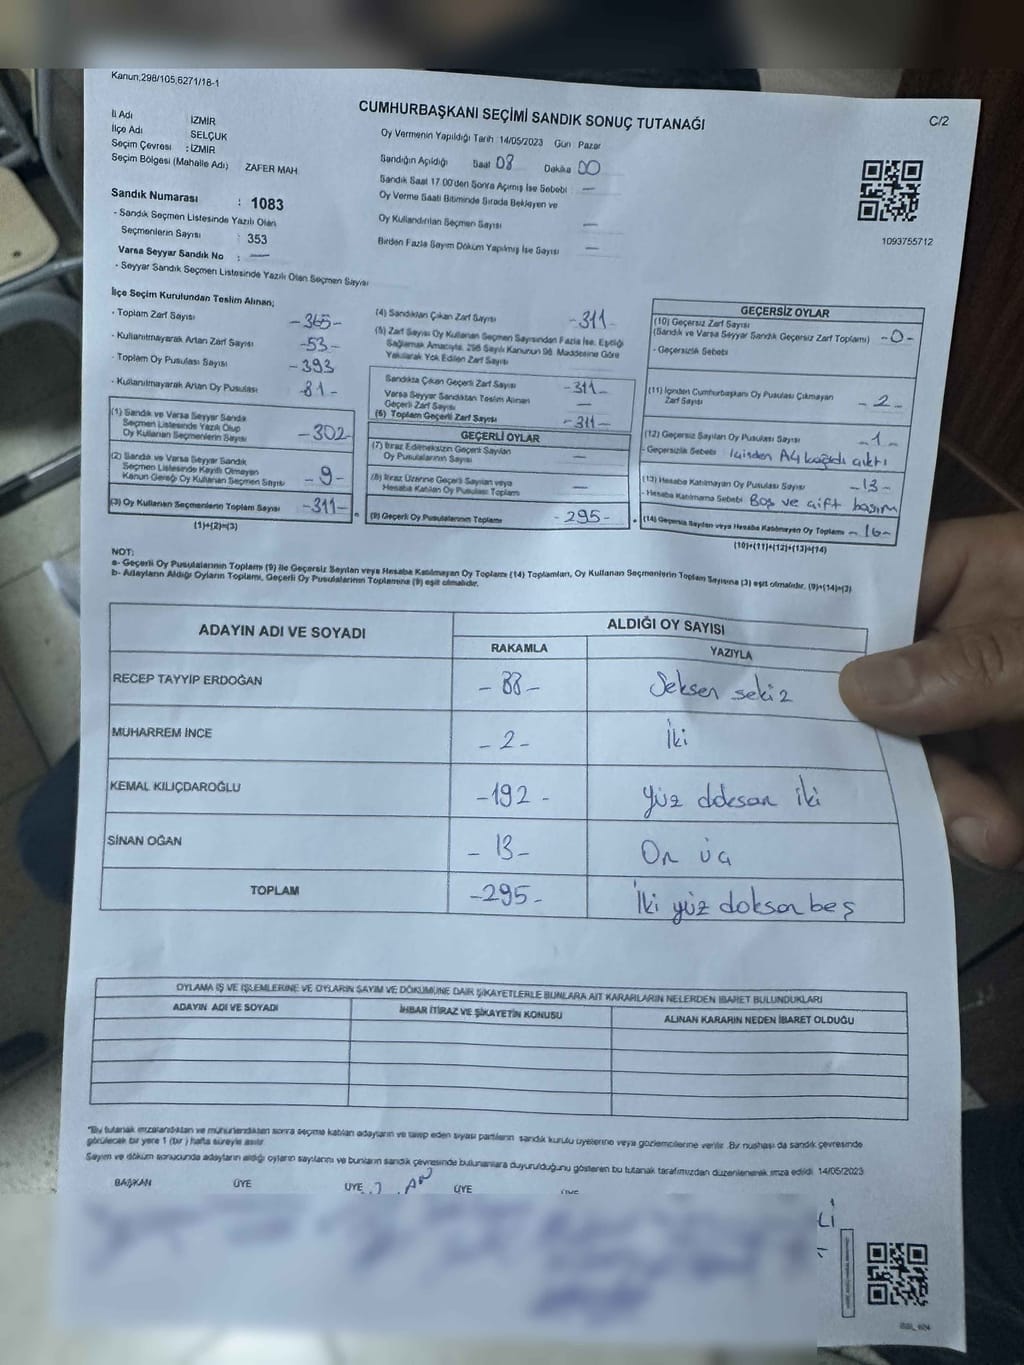 Kanun,298/105,6271/18-1
CUMHURBAŞKANI SEÇİMİ SANDIK SONUÇ TUTANAĞI
C/2
İl Adı İZMİR
İlçe Adı SELÇUK
Seçim Çevresi : İZMİR
Seçim Bölgesi (Mahalle Adı) ZAFER MAH
Sandık Numarası : 1083
- Sandık Seçmen Listesinde Yazılı Olan
Seçmenlerin Sayısı : 353
Varsa Seyyar Sandık No : —
- Seyyar Sandık Seçmen Listesinde Yazılı Olan Seçmen Sayısı
Oy Vermenin Yapıldığı Tarih 14/05/2023 Gün Pazar
Sandığın Açıldığı Saat 08 Dakika 00
Sandık Saat 17.00'den Sonra Açılmış İse Sebebi —
Oy Verme Saati Bitiminde Sırada Bekleyen ve
Oy Kullandırılan Seçmen Sayısı —
Birden Fazla Sayım Döküm Yapılmış İse Sayısı —
1093755712
İlçe Seçim Kurulundan Teslim Alınan;
- Toplam Zarf Sayısı -365-
- Kullanılmayarak Artan Zarf Sayısı -53-
- Toplam Oy Pusulası Sayısı -393
- Kullanılmayarak Artan Oy Pusulası -81-
(1) Sandık ve Varsa Seyyar Sandık
Seçmen Listesinde Yazılı Olup
Oy Kullanan Seçmenlerin Sayısı -302-
(2) Sandık ve Varsa Seyyar Sandık
Seçmen Listesinde Kayıtlı Olmayan
Kanun Gereği Oy Kullanan Seçmen Sayısı -9-
(3) Oy Kullanan Seçmenlerin Toplam Sayısı -311-
(1)+(2)=(3)
(4) Sandıktan Çıkan Zarf Sayısı -311-
(5) Zarf Sayısı Oy Kullanan Seçmen Sayısından Fazla İse, Eşitliği
Sağlamak Amacıyla, 298 Sayılı Kanunun 98. Maddesine Göre
Yakılarak Yok Edilen Zarf Sayısı
Sandıkta Çıkan Geçerli Zarf Sayısı -311-
Varsa Seyyar Sandıktan Teslim Alınan
Geçerli Zarf Sayısı —
(6) Toplam Geçerli Zarf Sayısı -311-
GEÇERLİ OYLAR
(7) İtiraz Edilmeksizin Geçerli Sayılan
Oy Pusulalarının Sayısı —
(8) İtiraz Üzerine Geçerli Sayılan veya
Hesaba Katılan Oy Pusulaları Toplamı —
(9) Geçerli Oy Pusulalarının Toplamı -295-
GEÇERSİZ OYLAR
(10) Geçersiz Zarf Sayısı
(Sandık ve Varsa Seyyar Sandık Geçersiz Zarf Toplamı) -0-
- Geçersizlik Sebebi
(11) İçinden Cumhurbaşkanı Oy Pusulası Çıkmayan
Zarf Sayısı -2-
(12) Geçersiz Sayılan Oy Pusulası Sayısı -1-
- Geçersizlik Sebebi İçinden A4 kağıdı çıktı
(13) Hesaba Katılmayan Oy Pusulası Sayısı -13-
- Hesaba Katılmama Sebebi Boş ve çift basım
(14) Geçersiz Sayılan veya Hesaba Katılmayan Oy Toplamı -16-
(10)+(11)+(12)+(13)=(14)
NOT:
a- Geçerli Oy Pusulalarının Toplamı (9) ile Geçersiz Sayılan veya Hesaba Katılmayan Oy Toplamı (14) Toplamları, Oy Kullanan Seçmenlerin Toplam Sayısına (3) eşit olmalıdır. (9)+(14)=(3)
b- Adayların Aldığı Oyların Toplamı, Geçerli Oy Pusulalarının Toplamına (9) eşit olmalıdır.
ADAYIN ADI VE SOYADI ALDIĞI OY SAYISI
RAKAMLA YAZIYLA
RECEP TAYYİP ERDOĞAN -88- Seksen sekiz
MUHARREM İNCE -2- İki
KEMAL KILIÇDAROĞLU -192- yüz doksan iki
SİNAN OĞAN -13- On üç
TOPLAM -295- İki yüz doksan beş
OYLAMA İŞ VE İŞLEMLERİNE VE OYLARIN SAYIM VE DÖKÜMÜNE DAİR ŞİKAYETLERLE BUNLARA AİT KARARLARIN NELERDEN İBARET BULUNDUKLARI
ADAYIN ADI VE SOYADI İHBAR İTİRAZ VE ŞİKAYETİN KONUSU ALINAN KARARIN NEDEN İBARET OLDUĞU
*Bu tutanak imzalandıktan ve mühürlendikten sonra seçime katılan adayların ve talep eden siyasi partilerin sandık kurulu üyelerine veya gözlemcilerine verilir. Bir nushası da sandık çevresinde
görülecek bir yere 1 (bir) hafta süreyle asılır.
Sayım ve döküm sonucunda adayların aldığı oyların sayılarını ve bunların sandık çevresinde bulunanlara duyurulduğunu gösteren bu tutanak tarafımızdan düzenlenerek imza edildi. 14/05/2023
BAŞKAN ÜYE ÜYE ÜYE ÜYE